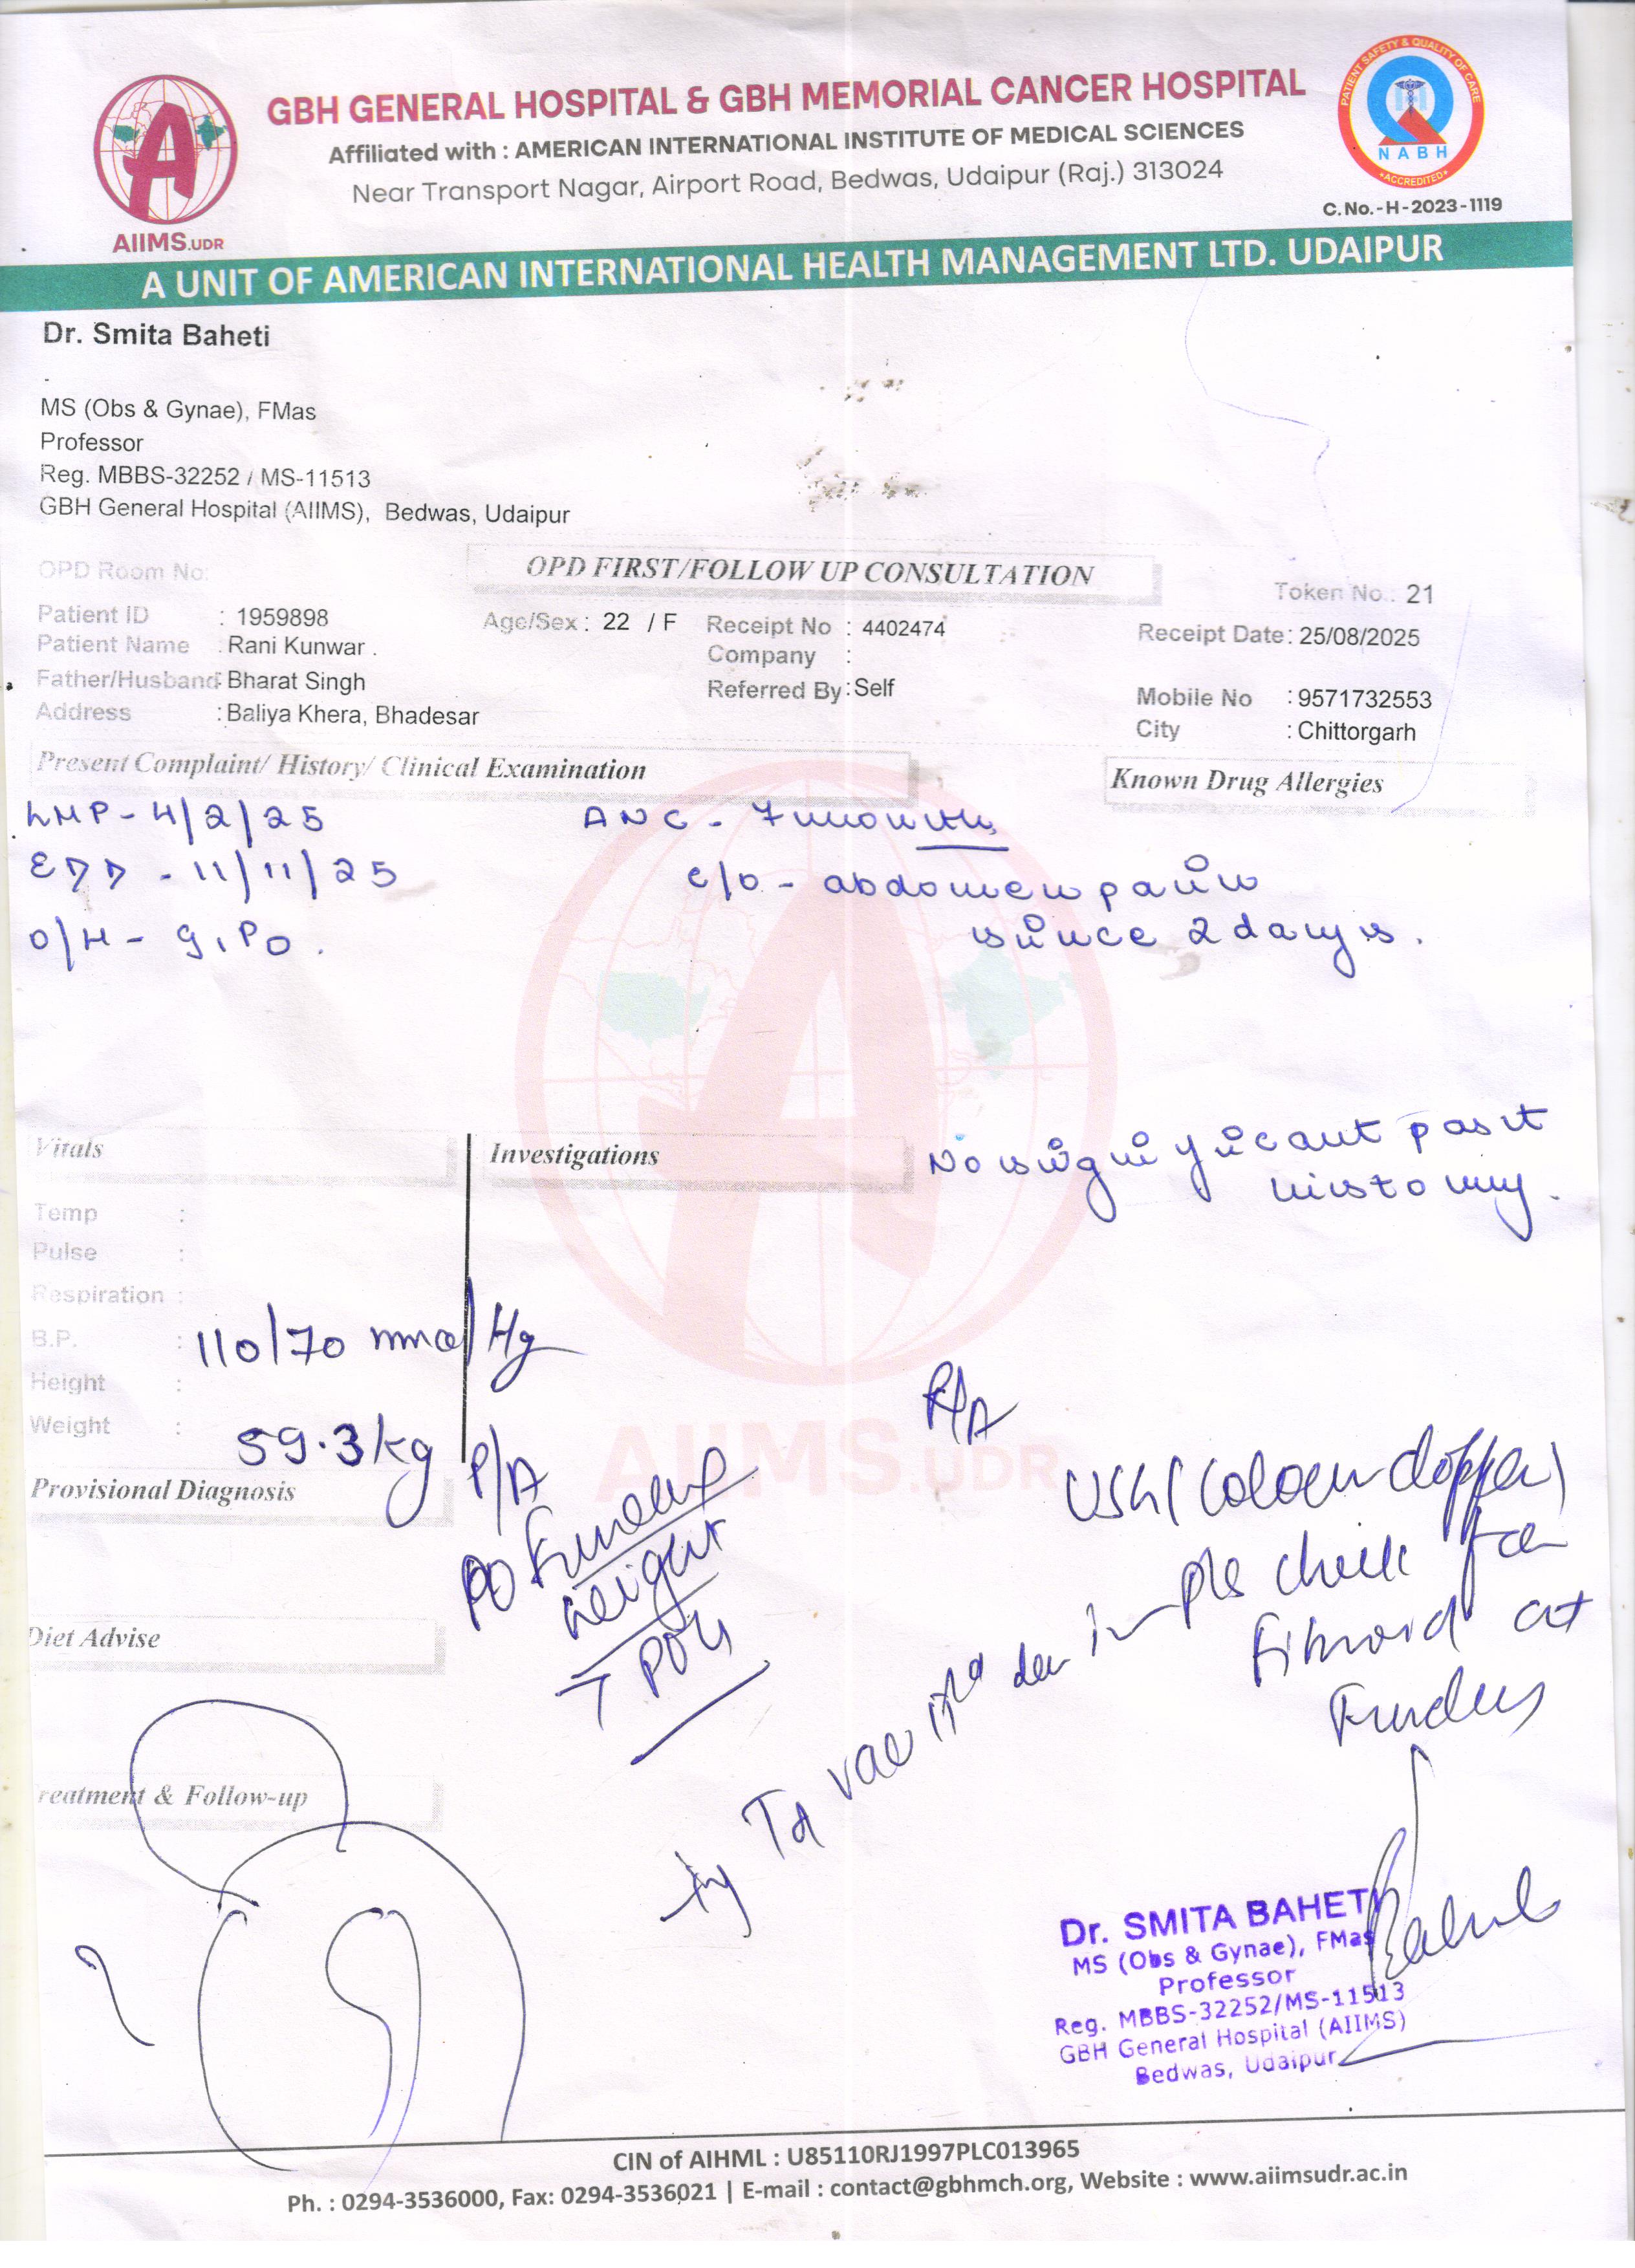 GBH GENERAL HOSPITAL & GBH MEMORIAL CANCER HOSPITAL
Affiliated with : AMERICAN INTERNATIONAL INSTITUTE OF MEDICAL SCIENCES
Near Transport Nagar, Airport Road, Bedwas, Udaipur (Raj.) 313024
PATIENT SAFETY & QUALITY OF CARE
NABH
ACCREDITED
C.No.-H-2023-1119
A
AIIMS.UDR
A UNIT OF AMERICAN INTERNATIONAL HEALTH MANAGEMENT LTD. UDAIPUR
Dr. Smita Baheti
MS (Obs & Gynae), FMas
Professor
Reg. MBBS-32252 / MS-11513
GBH General Hospital (AIIMS), Bedwas, Udaipur
OPD Room No:
OPD FIRST/FOLLOW UP CONSULTATION
Token No.: 21
Patient ID : 1959898
Age/Sex : 22 / F
Receipt No : 4402474
Receipt Date: 25/08/2025
Patient Name : Rani Kunwar .
Company :
Father/Husband: Bharat Singh
Referred By : Self
Mobile No : 9571732553
Address : Baliya Khera, Bhadesar
City : Chittorgarh
Present Complaint/ History/ Clinical Examination
Known Drug Allergies
LMP - 4/2/25
ANC - 7 months
EDD - 11/11/25
c/o - abdomen pain
since 2 days.
O/H - G1P0.
Vitals
Investigations
No significant past
history.
Temp :
Pulse :
Respiration :
B.P. : 110/70 mmol/Hg
Height :
Weight : 59.3kg
P/A
P/A
Fundal
height
POG
USG (colour doppler)
pls check for
fibroid at
Fundus
Provisional Diagnosis
Diet Advise
Treatment & Follow-up
AIIMS.UDR
Dr. SMITA BAHETI
MS (Obs & Gynae), FMas
Professor
Reg. MBBS-32252/MS-11513
GBH General Hospital (AIIMS)
Bedwas, Udaipur
CIN of AIHML : U85110RJ1997PLC013965
Ph. : 0294-3536000, Fax: 0294-3536021 | E-mail : contact@gbhmch.org, Website : www.aiimsudr.ac.in